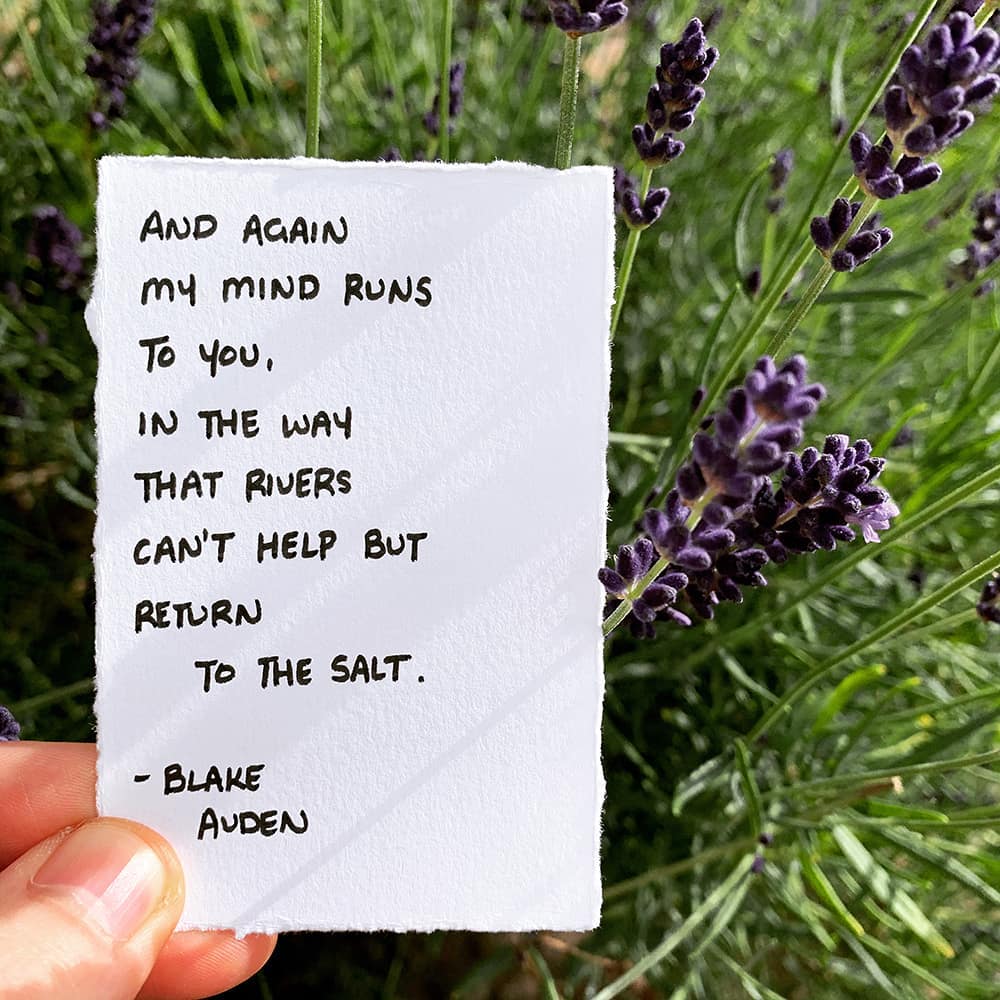 AND AGAIN
MY MIND RUNS
TO YOU,
IN THE WAY
THAT RIVERS
CAN'T HELP BUT
RETURN
TO THE SALT.
- BLAKE
AUDEN